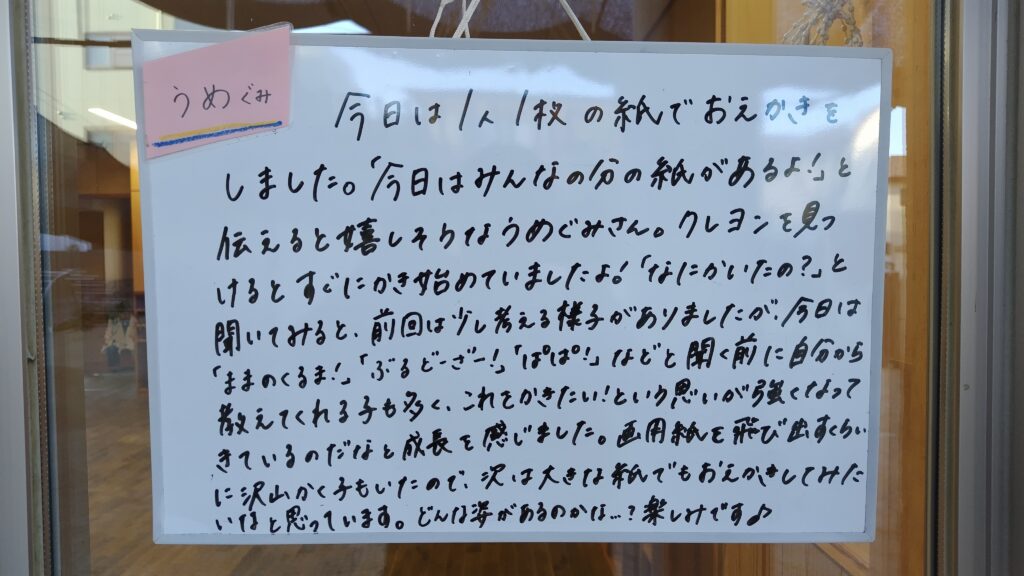 うめぐみ
今日は1人1枚の紙でおえかきを
しました。「今日はみんなの分の紙があるよ!」と
伝えると嬉しそうなうめぐみさん。クレヨンを見つ
けるとすぐにかき始めていましたよ!「なにかいたの?」と
聞いてみると、前回は少し考える様子がありましたが、今日は
「ままのくるま!」「ぶるどーざー!」「ぱぱ!」などと聞く前に自分から
教えてくれる子も多く、これをかきたい!という思いが強くなって
きているのだなと成長を感じました。画用紙を飛び出すくらい
に沢山かく子もいたので、次は大きな紙でもおえかきしてみた
いなと思っています。どんな姿があるのかな…?楽しみです♪